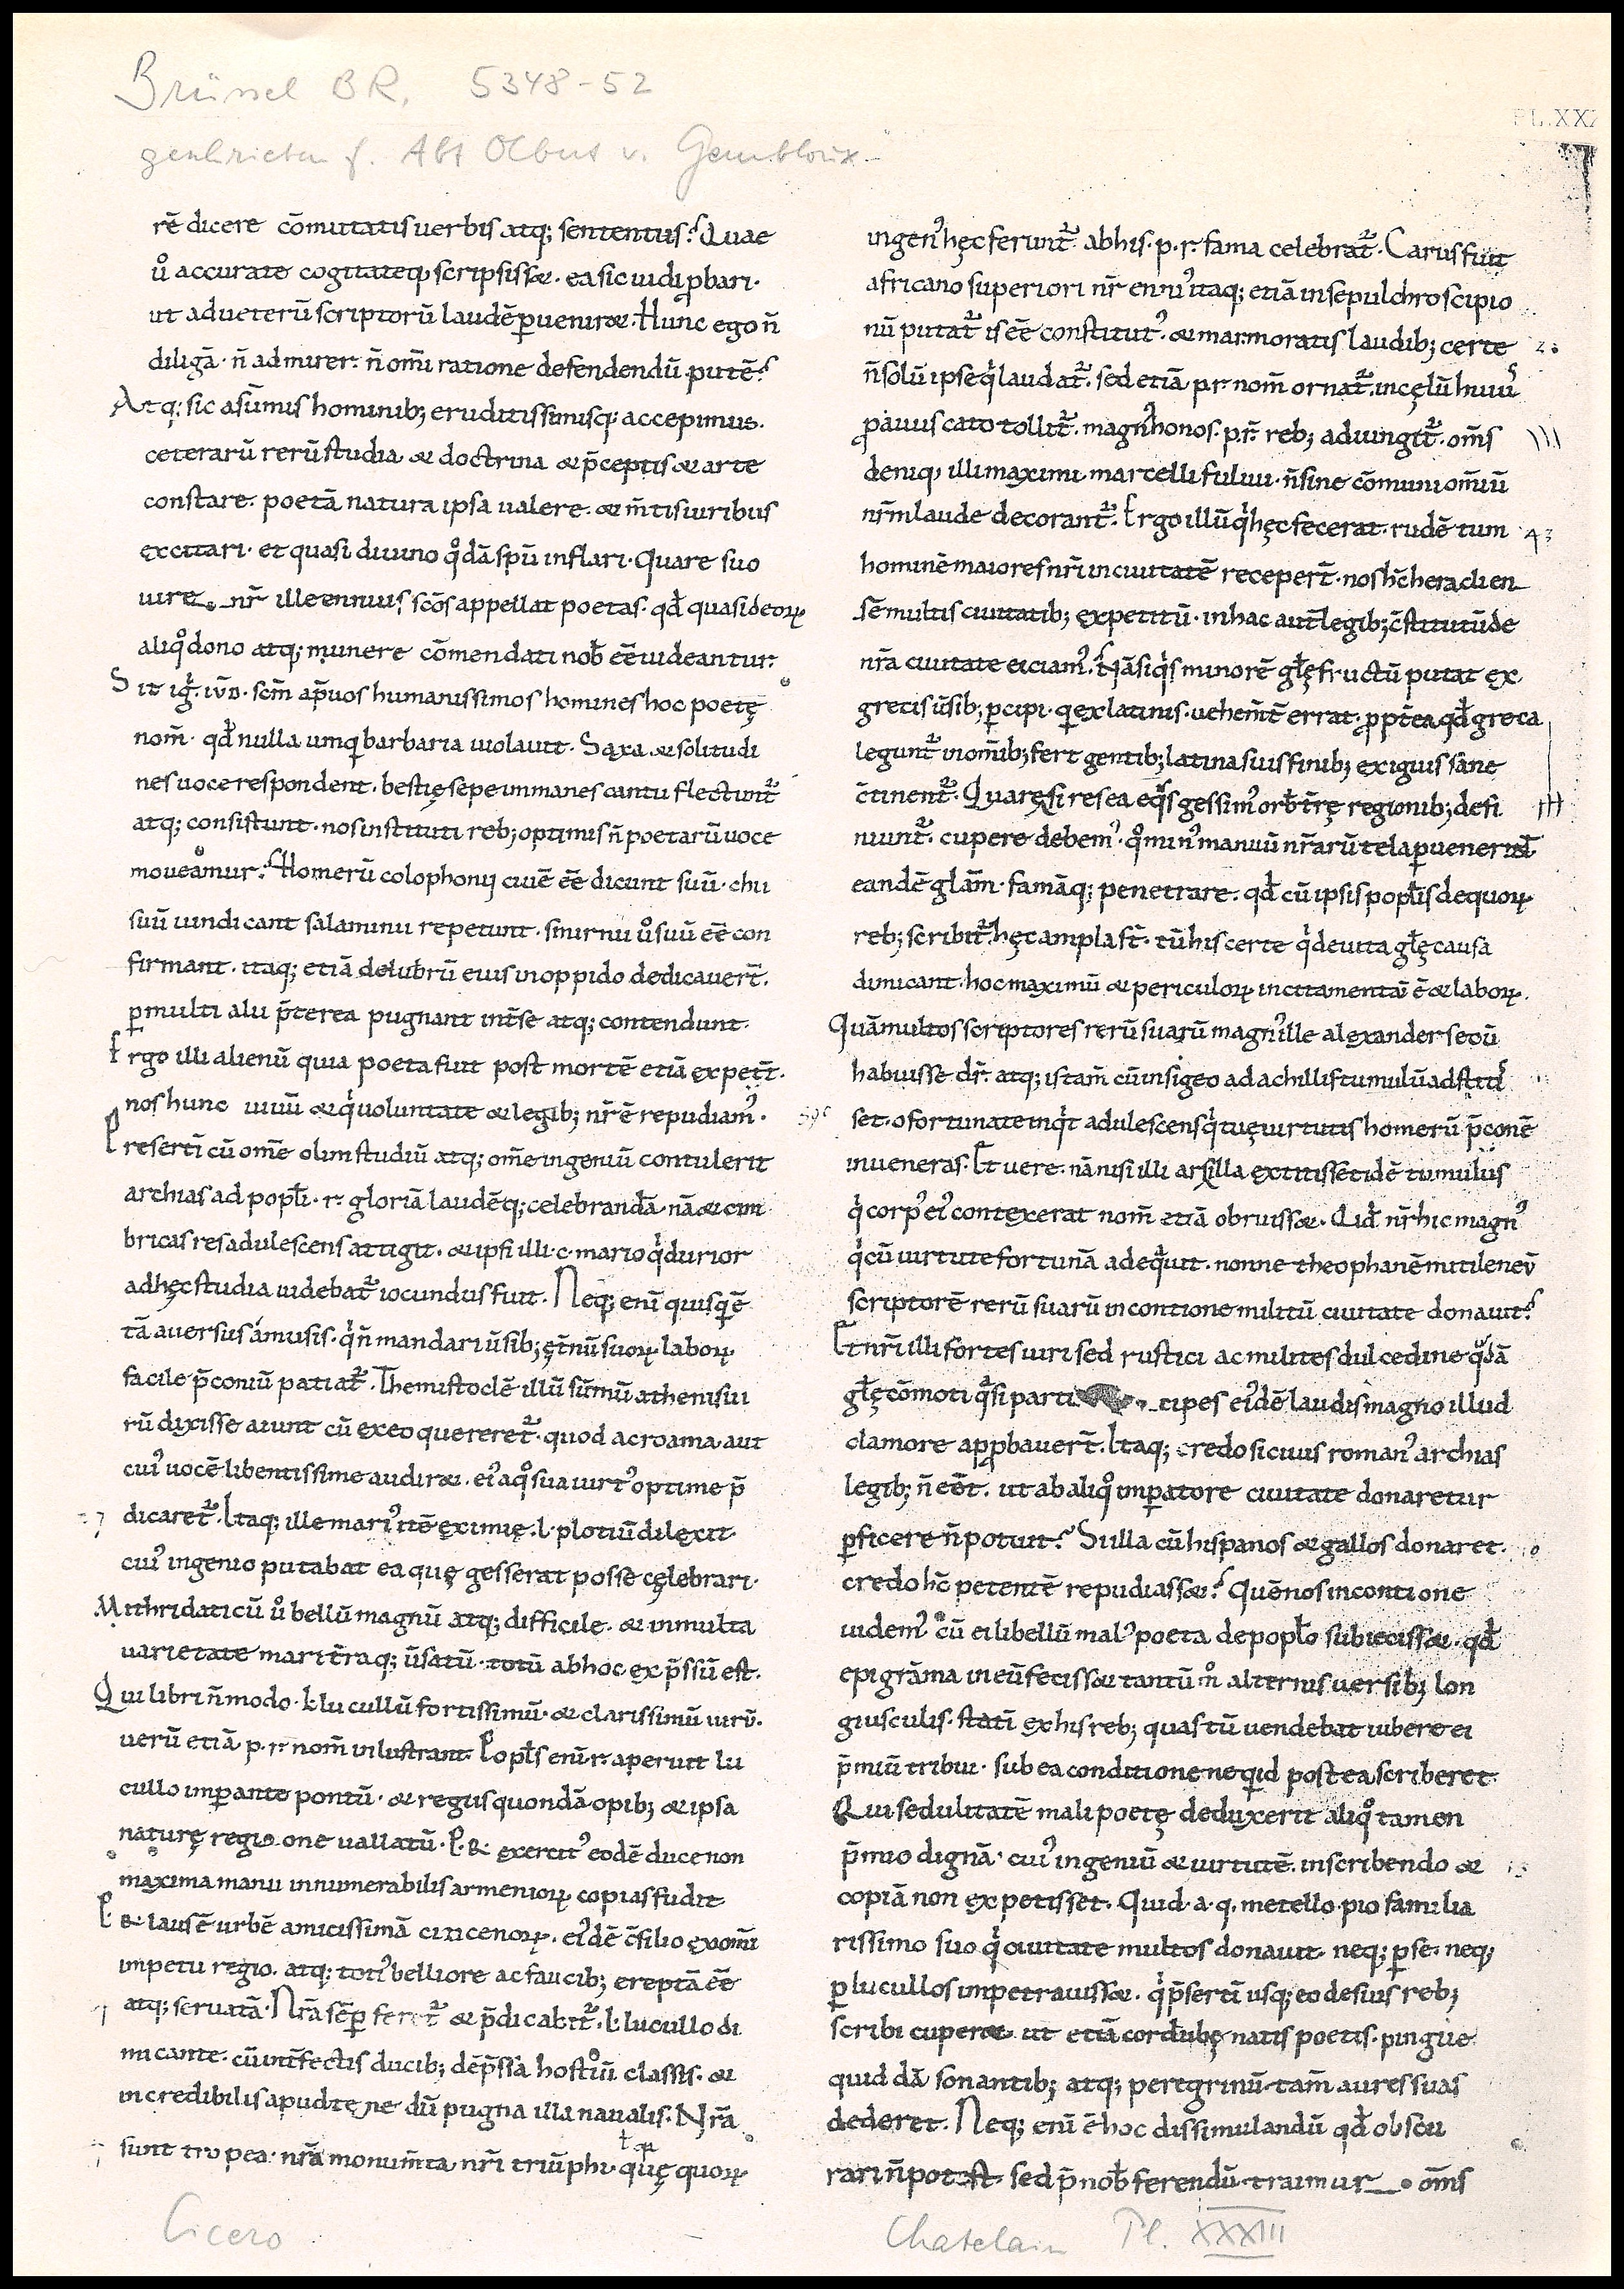 Brüssel BR. 5348-52
geschrieben f. Abt Olbert v. Gembloux
PL. XXX
rē dicere cōmutatis uerbis atq; sententiis? Quae
ů accurate cogitateq; scripsisset. ea sic uidi ꝓbari.
ut ad ueterū scriptorū laudē ꝑueniret. Hunc ego n̄
diligā. n̄ admirer. n̄ om̄i ratione defendendū putē?
Atq; sic a sūmis hominib; eruditissimisq; accepimus.
ceterarū rerū studia & doctrina & p̄ceptis & arte
constare. poetā natura ipsa ualere. & m̄tis uiribus
excitari. et quasi diuino qͦdā spū inflari. Quare suo
iure nr̄ ille ennius scōs appellat poetas. qđ quasi deoꝝ
aliqͦ dono atq; munere cōmendati nob̄ eē uideantur.
Sit igͥ. iūd. scm̄ ap̄ uos humanissimos homines hoc poetę
nom̄. qđ nulla umq̄ barbaria uiolauit. Saxa & solitudi
nes uoce respondent. bestię sepe immanes cantu flectunt᷑
atq; consistunt. nos instituti reb; optimis n̄ poetarū uoce
moueamur? Homerū colophonij ciuē eē dicunt suū. chii
suū uindicant salaminii repetunt. smirnii ů suū eē con
firmant. itaq; etiā delubrū eius in oppido dedicauer̄t.
ꝑmulti alii p̄terea pugnant int̄ se atq; contendunt.
Ergo illi alienū quia poeta fuit post mortē etiā expet̄t.
nos hunc uiuū & qͥ uoluntate & legib; nr̄ ē repudiamꝰ.
Presertī cū om̄e olim studiū atq; om̄e ingeniū contulerit
archias ad popl̄i. r. gloriā laudēq; celebrandā. nā & cim
bricas res adulescens attigit. & ipsi illi. c. mario qͥ durior
ad hęc studia uidebat᷑ iocundus fuit. Neq; enī quisq̄ ē
tā auersus a musis. qͥ n̄ mandari ūsib; ęt̄nū suoꝝ laboꝝ
facile p̄coniū patiat᷑. Themistoclē illū sūmū athenis ui
rū dixisse aiunt cū ex eo quereret᷑. quod acroama aut
cuiꝰ uocē libentissime audiret. eiꝰ a qͦ sua uirtꝰ optime p̄
dicaret᷑. Itaq; ille mariꝰ itē eximię. l. plotiū dilexit.
cuiꝰ ingenio putabat ea quę gesserat posse cęlebrari.
Mithridaticū ů bellū magnū atq; difficile. & in multa
uarietate mari t̄raq; ūsatū. totū ab hoc exp̄ssū est.
Qui libri n̄ modo. l. lucullū fortissimū. & clarissimū uirū.
uerū etiā p. r. nom̄ inlustrant. Popl̄s enī. r. aperuit lu
cullo imꝑante pontū. & regiis quondā opib; & ipsa
naturę regione uallatū. P. R. exercitꝰ eodē duce non
maxima manu innumerabilis armenioꝝ copias fudit.
P. R. laus ē urbē amicissimā cizicenoꝝ. eiꝰdē c̄silio ex om̄i
impetu regio. atq; totiꝰ belli ore ac faucib; ereptā eē
atq; seruatā. Nr̄a sēꝑ feret᷑ & p̄dicabit᷑. l. lucullo di
micante. cū int̄fectis ducib; dēp̄ssa hostiū classis. &
incredibilis apud tenedū pugna illa naualis. Nr̄a
sunt tropea. nr̄a monum̄ta nr̄i triūphi. quę quoꝝ
ingeniꝰ hęc ferunt᷑. ab his. p. r. fama celebrat᷑. Carus fuit
africano superiori nr̄ enniꝰ itaq; etiā in sepulchro scipio
nū putat᷑ is eē constitutꝰ. & marmoratis laudib; certe
n̄ solū ipse qͥ laudat᷑. sed etiā p. r. nom̄ ornat᷑. in cęlū huiꝰ
ꝓauus cato tollit᷑. magnꝰ honos. p. r̄. reb; adiungit᷑. om̄s
deniq; illi maximi. marcelli fuluii. n̄ sine cōmuni om̄iū
nr̄m laude decorant᷑. Ergo illū qͥ hęc fecerat. rudē tum
hominē maiores nr̄i in ciuitatē receper̄t. nos h̄c heraclien
sē multis ciuitatib; expetitū. in hac aut̄ legib; c̄stitutū de
nr̄a ciuitate eiciamꝰ. Nā si qͥs minorē gl̄ę fructū putat ex
grecis ūsib; ꝑcipi. q̄ ex latinis. uehem̄t̄ errat. ꝓpt̄ea qđ greca
legunt᷑ in om̄ib; fert gentib; latina suis finib; exiguis sane
c̄tinent᷑. Quare si res ea eqͥs gessimꝰ orb̄ t̄rę regionib; defi
niunt᷑. cupere debemꝰ. qͦ minꝰ manuū nr̄arū tela ꝑuenerint
eandē glām. famāq; penetrare. qđ cū ipsis popl̄is de quoꝝ
reb; scribit᷑. hęc ampla st̄. tū his certe qͥ de uita gl̄ę causa
dimicant. hoc maximū & periculoꝝ incitamentū ē & laboꝝ.
Quā multos scriptores rerū suarū magnꝰ ille alexander secū
habuisse dr̄. atq; is tam̄ cū in sigeo ad achillis tumulū adstitis
set. o fortunate inqͥt adulescens qͥ tuę uirtutis homerū p̄conē
inueneras. Et uere. nā nisi illi ars illa extitisset idē tumulus
qͥ corpꝰ eiꝰ contexerat nom̄ etiā obruisset. Qid̄ nr̄ hic magnꝰ
qͥ cū uirtute fortunā adequit. nonne theophanē mitilenēū
scriptorē rerū suarū in contione militū ciuitate donauit?
Et nr̄i illi fortes uiri sed rustici ac milites dulcedine qͣdā
gl̄ę cōmoti qͣsi parti cipes eiꝰdē laudis magno illud
clamore apꝓbauer̄t. Itaq; credo si ciuis romanꝰ archias
legib; n̄ eēt. ut ab aliqͦ imꝑatore ciuitate donaretur
ꝑficere n̄ potuit? Sulla cū hispanos & gallos donaret.
credo h̄c petentē repudiasset? Quē nos in contione
uidemꝰ cū ei libellū malꝰ poeta de popl̄o subiecisset. qđ
epigrāma in eū fecisset tantū m̊ alternis uersib; lon
giusculis. statī ex his reb; quas tū uendebat iubere ei
p̄miū tribui. sub ea conditione ne quid postea scriberet.
Qui sedulitatē mali poetę deduxerit aliqͦ tamen
p̄mio dignā. cuiꝰ ingeniū & uirtutē in scribendo &
copiā non expetisset. Quid. a. q. metello pio familia
rissimo suo qͥ ciuitate multos donauit. neq; ꝑ se. neq;
ꝑ lucullos impetrauisset. qͥ p̄sertī usq; eo de suis reb;
scribi cuperet. ut etiā cordubę natis poetis. pingue
quiddā sonantib; atq; peregrinū. tam̄ aures suas
dederet. Neq; enī ē hoc dissimulandū qđ obscu
rari n̄ potest. sed p̄ nob̄ ferendū. traimur om̄s
Cicero
Chatelain Pl. XXXIII